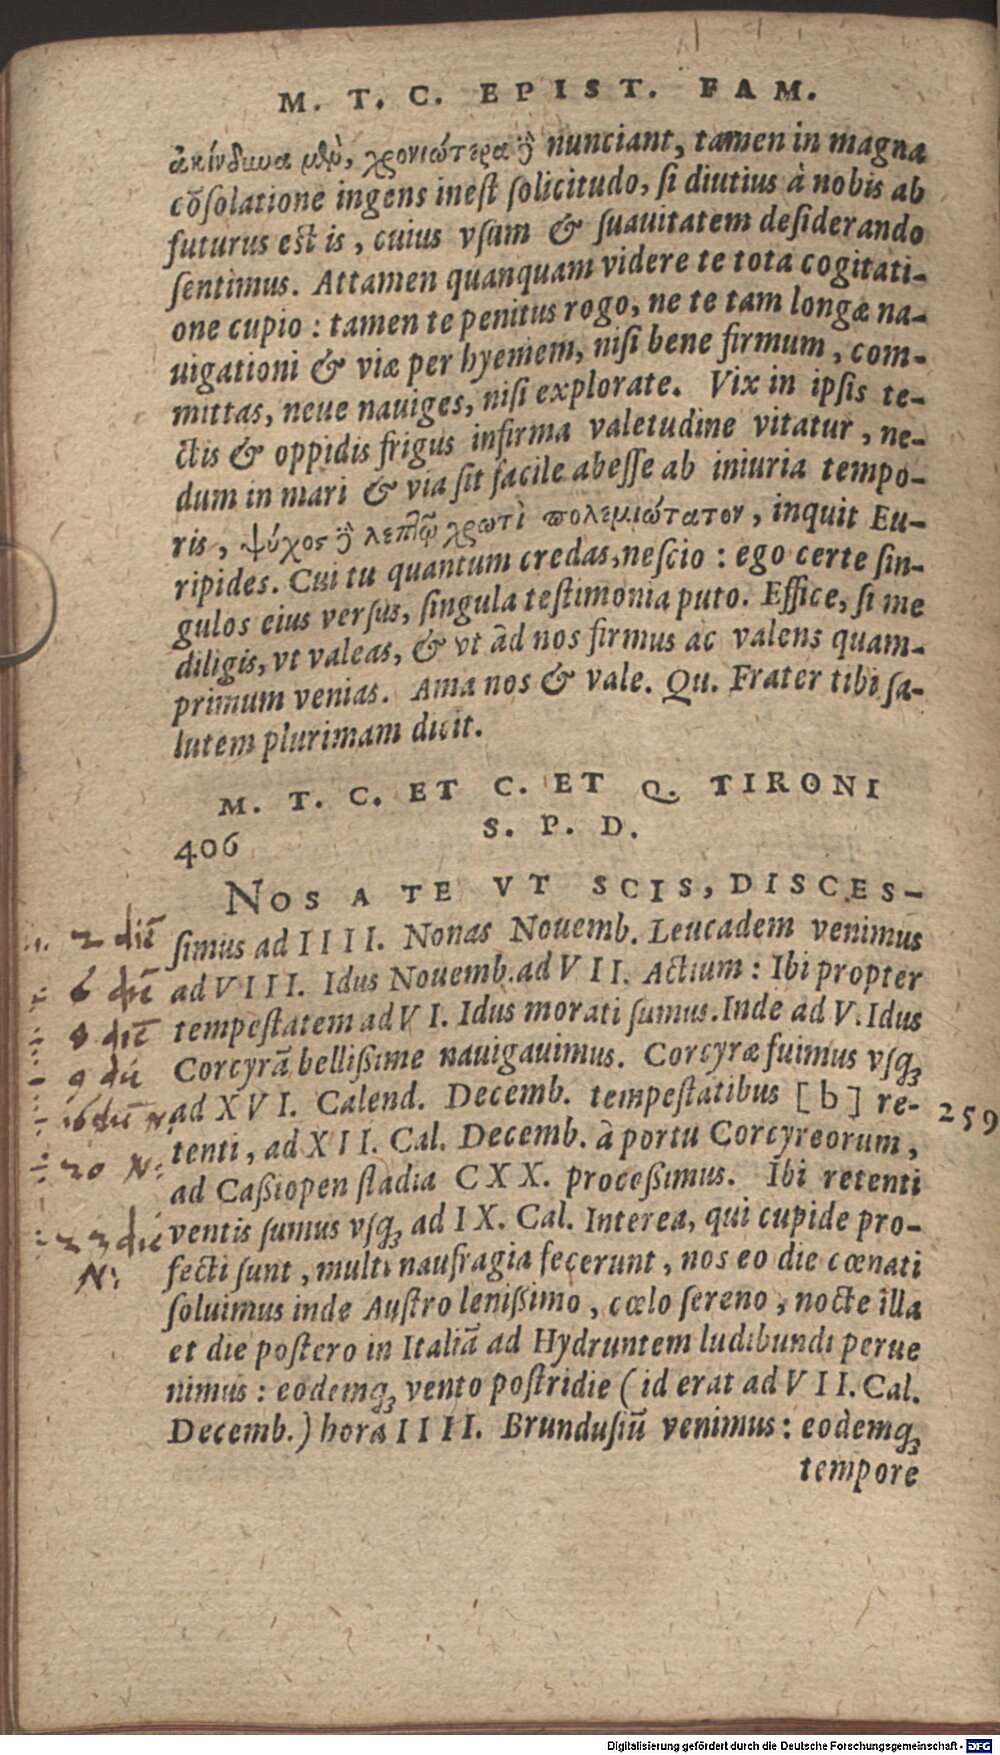 M. T. C. EPIST. FAM.
ἀκίνδυνα μὲν, χρονιώτερα δὲ nunciant, tamen in magna
cōsolatione ingens inest solicitudo, si diutius à nobis ab
futurus est is, cuius vsum & suauitatem desiderando
sentimus. Attamen quanquam videre te tota cogitati-
one cupio: tamen te penitus rogo, ne te tam longæ na-
uigationi & viæ per hyemem, nisi bene firmum, com-
mittas, neue nauiges, nisi explorate. Vix in ipsis te-
ctis & oppidis frigus infirma valetudine vitatur, ne-
dum in mari & via sit facile abesse ab iniuria tempo-
ris, ψύχος δὲ λεπτῷ χρωτὶ πολεμιώτατον, inquit Eu-
ripides. Cui tu quantum credas, nescio: ego certe sin-
gulos eius versus, singula testimonia puto. Effice, si me
diligis, vt valeas, & vt ad nos firmus ac valens quam-
primum venias. Ama nos & vale. Qu. Frater tibi sa-
lutem plurimam dicit.
M. T. C. ET C. ET Q. TIRONI
S. P. D.
406
NOS A TE VT SCIS, DISCES-
2 diē
simus ad IIII. Nonas Nouemb. Leucadem venimus
6 diē
ad VIII. Idus Nouemb. ad VII. Actium: Ibi propter
8 diē
tempestatem ad VI. Idus morati sumus. Inde ad V. Idus
9 diē
Corcyrā bellissime nauigauimus. Corcyræ fuimus vsq;
16 diē N.
ad XVI. Calend. Decemb. tempestatibus [b] re-
259
tenti, ad XII. Cal. Decemb. à portu Corcyreorum,
20 N:
ad Cassiopen stadia CXX. processimus. Ibi retenti
23 diē
ventis sumus vsq; ad IX. Cal. Interea, qui cupide pro-
N:
fecti sunt, multi naufragia fecerunt, nos eo die cœnati
soluimus inde Austro lenissimo, cœlo sereno, nocte illa
et die postero in Italiā ad Hydruntem ludibundi perue
nimus: eodemq; vento postridie (id erat ad VII. Cal.
Decemb.) hora IIII. Brundusiū venimus: eodemq;
tempore
Digitalisierung gefördert durch die Deutsche Forschungsgemeinschaft - DFG